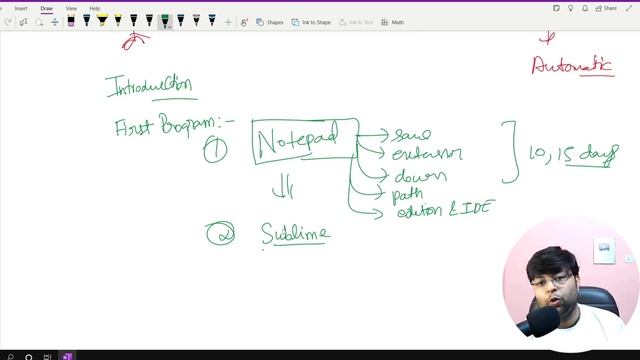 Insert Draw View Help
Shapes Ink to Shape Ink to Text Math
Automatic
Introduction
First Program:-
① Notepad save
extension
down
path
edition & IDE
10, 15 days
② Sublime